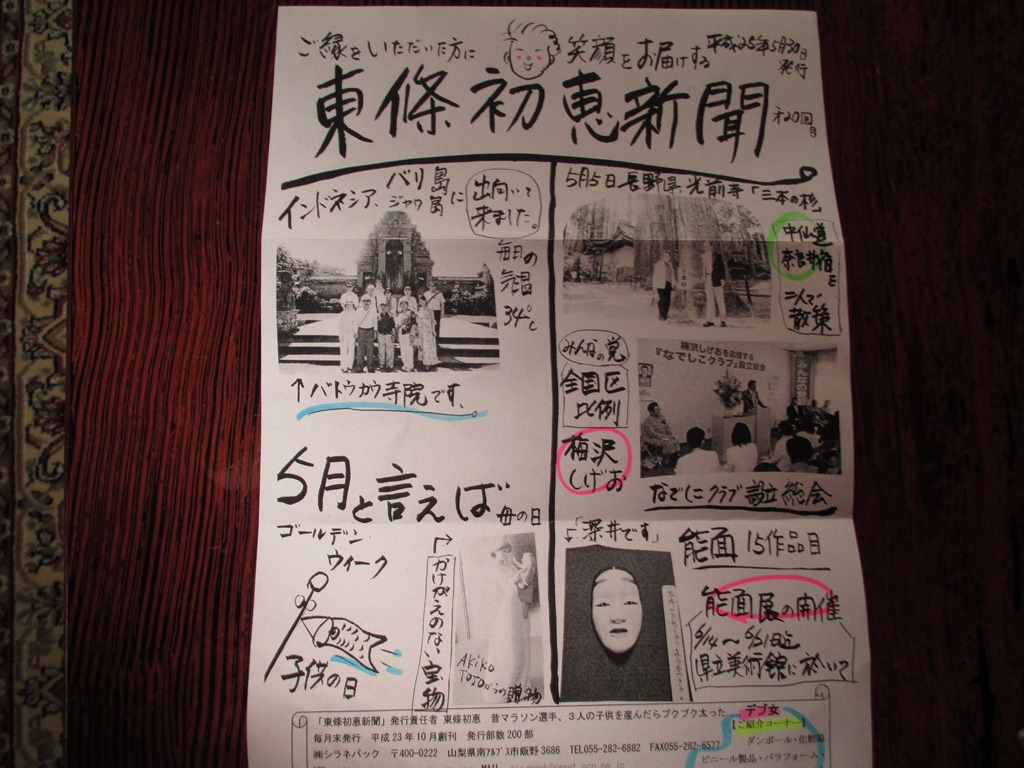 ご縁をいただいた方に
笑顔をお届けする
平成25年5月30日
発行
東條初恵新聞
才20回目
インドネシア、バリ島
ジャワ島に
出向いて
来ました。
毎日の
気温
34°C
↑バトウカウ寺院です。
5月5日 長野県 光前寺「三本の杉」
中仙道
奈良井宿を
二人で
散策
みんなの党
全国区
比例
梅沢
しげお
梅沢しげおを応援する
『なでしこクラブ』設立総会
みんなの
なでしこクラブ設立総会
5月と言えば
母の日
ゴールデン
ウィーク
子供の日
かけがえのない宝物
AKiKo
TOJOからの贈り物
「深井です」
能面 15作品目
能面展の開催
6/14〜6/21日迄
県立美術館に於いて
「東條初恵新聞」発行責任者 東條初恵 昔マラソン選手、3人の子供を産んだらブクブク太った デブ女
毎月末発行 平成23年10月創刊 発行部数200部
【ご紹介コーナー】
㈱シラネパック 〒400-0222 山梨県南アルプス市飯野3686 TEL055-282-6882 FAX055-282-6577
ダンボール・化粧箱
ビニール製品・パラフォーム・